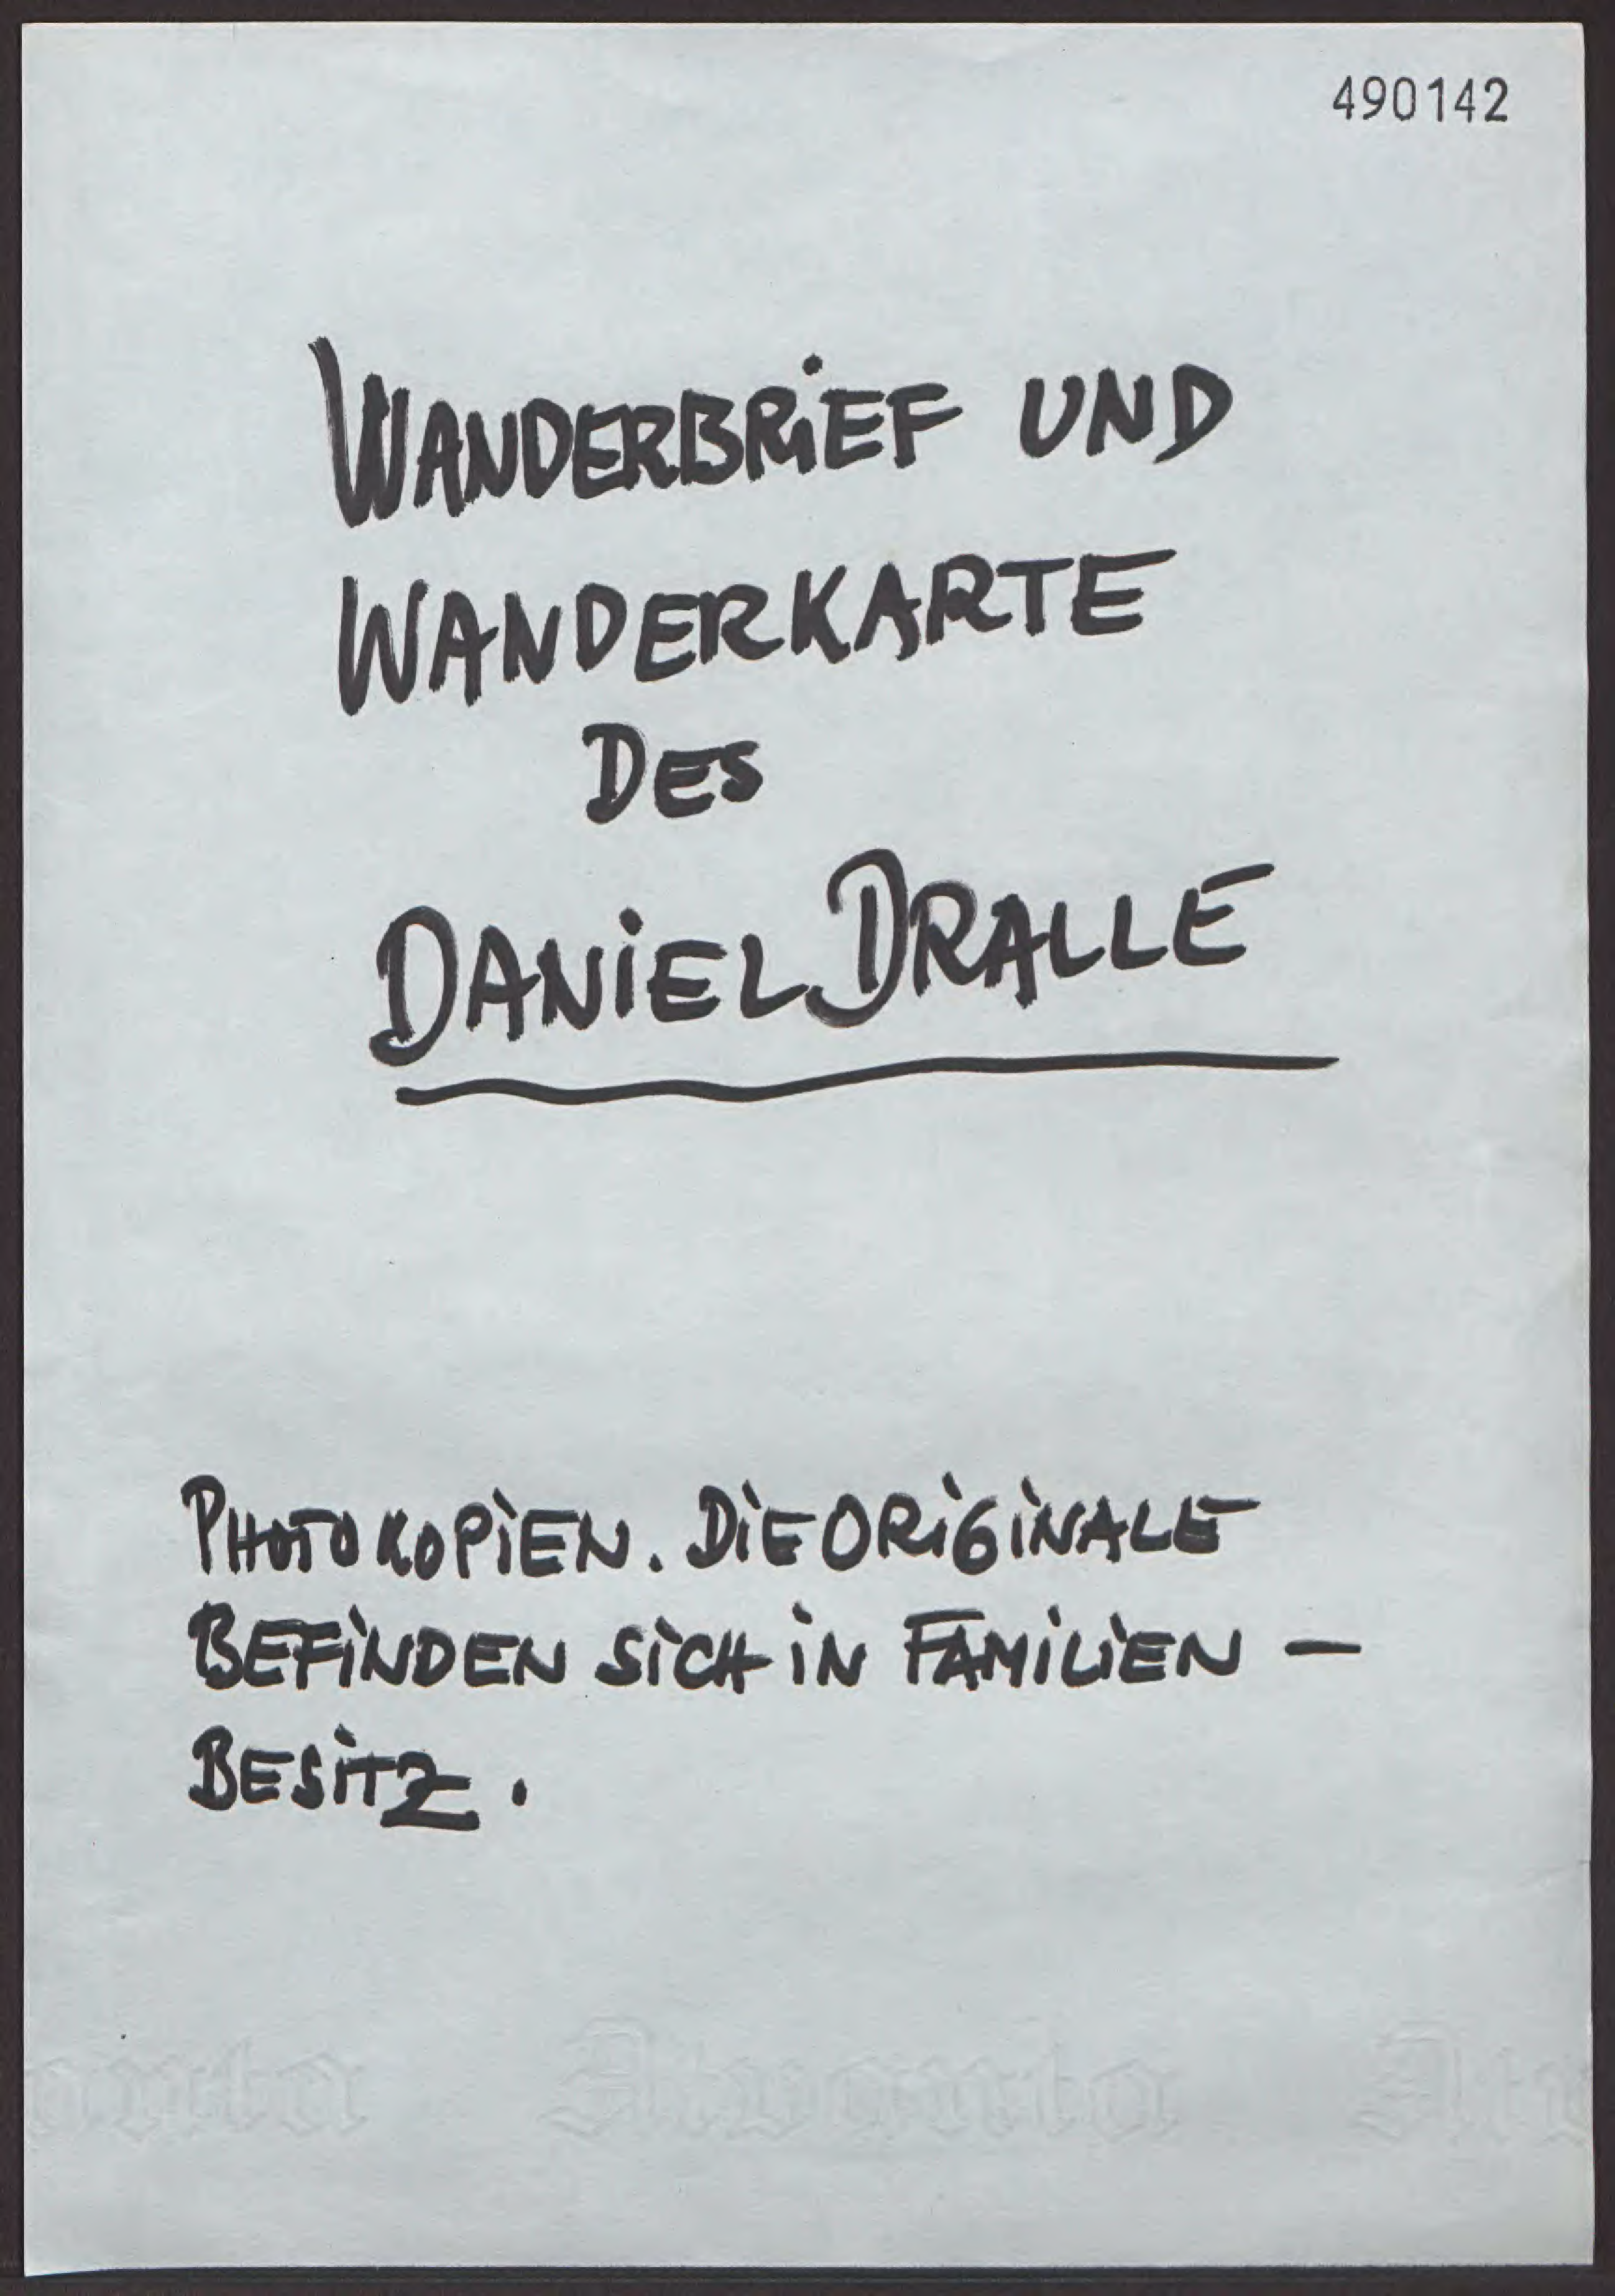 490142
WANDERBRiEF UND
WANDERKARTE
DES
DANiEL DRALLE
PHOTOKOPiEN. DiE ORiGiNALE
BEFiNDEN SiCH iN FAMiLiEN –
BESiTZ.